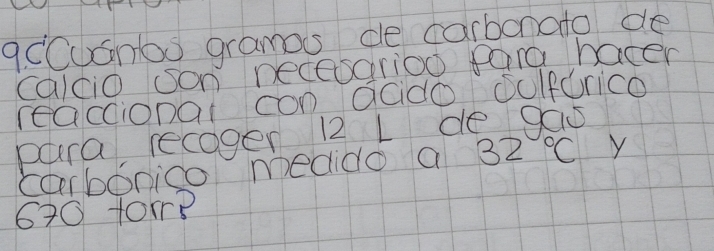 9¿Cuántos gramos de carbonato de
calcio son necesarios para hacer
reaccionar con ácido sulfúrico
para recoger 12 L de gas
carbónico medido a 32°C y
670 torr?